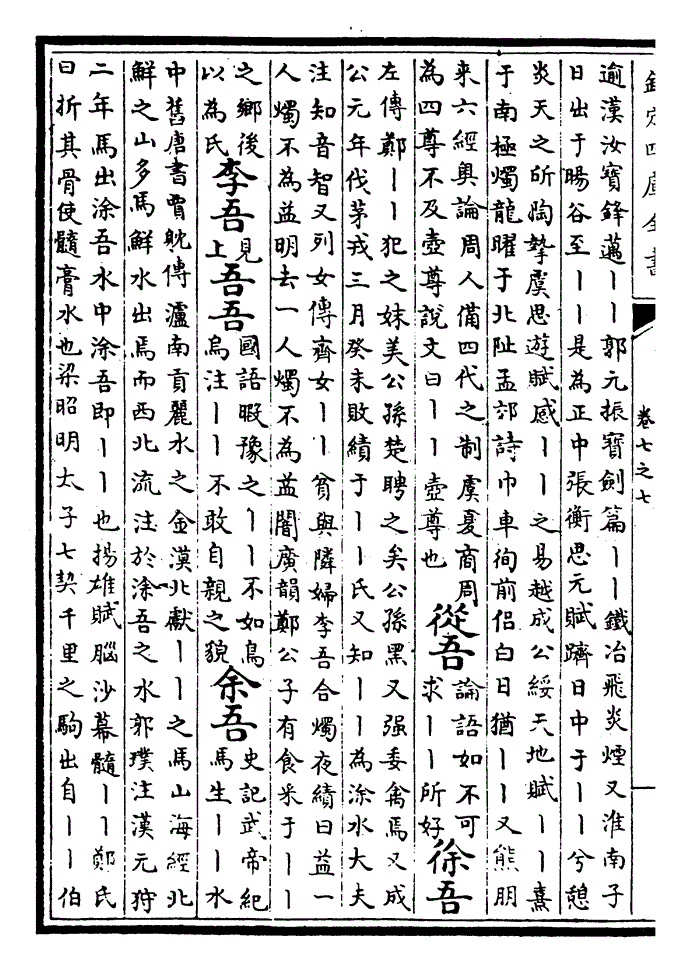 欽定四庫全書
卷七之七
逾漢汝寶鋒邁丨丨郭元振寶劍篇丨丨鐵冶飛炎煙又淮南子
日出于暘谷至丨丨是為正中張衡思元賦躋日中于丨丨兮憩
炎天之所陶摯虞思遊賦感丨丨之易越成公綏天地賦丨丨熹
于南極燭龍曜于北阯孟郊詩巾車徇前侶白日猶丨丨又熊朋
来六經奥論周人備四代之制虞夏商周
為四尊不及壺尊說文曰丨丨壺尊也
從吾
論語如不可
求丨丨所好
徐吾
左傳鄭丨丨犯之妹美公孫楚聘之矣公孫黑又强委禽焉又成
公元年伐茅戎三月癸未敗績于丨丨氏又知丨丨為涂水大夫
注知音智又列女傳齊女丨丨貧與隣婦李吾合燭夜績曰益一
人燭不為益明去一人燭不為益闇廣韻鄭公子有食采于丨丨
之鄉後
以為氏
李吾
見
上
吾吾
國語暇豫之丨丨不如鳥
烏注丨丨不敢自親之貌
余吾
史記武帝紀
馬生丨丨水
中舊唐書賈躭傳瀘南貢麗水之金漠北獻丨丨之馬山海經北
鮮之山多馬鮮水出焉而西北流注於涂吾之水郭璞注漢元狩
二年馬出涂吾水中涂吾即丨丨也揚雄賦腦沙幕髓丨丨鄭氏
曰折其骨使髓膏水也梁昭明太子七契千里之駒出自丨丨伯